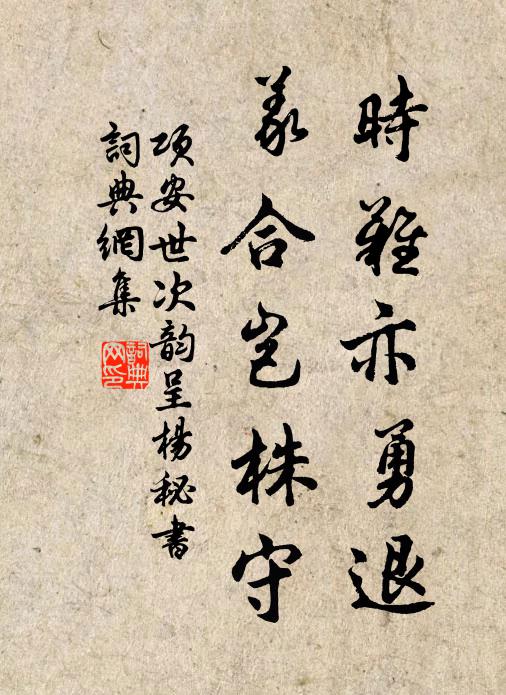 時難亦勇退
義合豈株守
項安世次韵呈楊秘書
詞典網集
詞典
网印